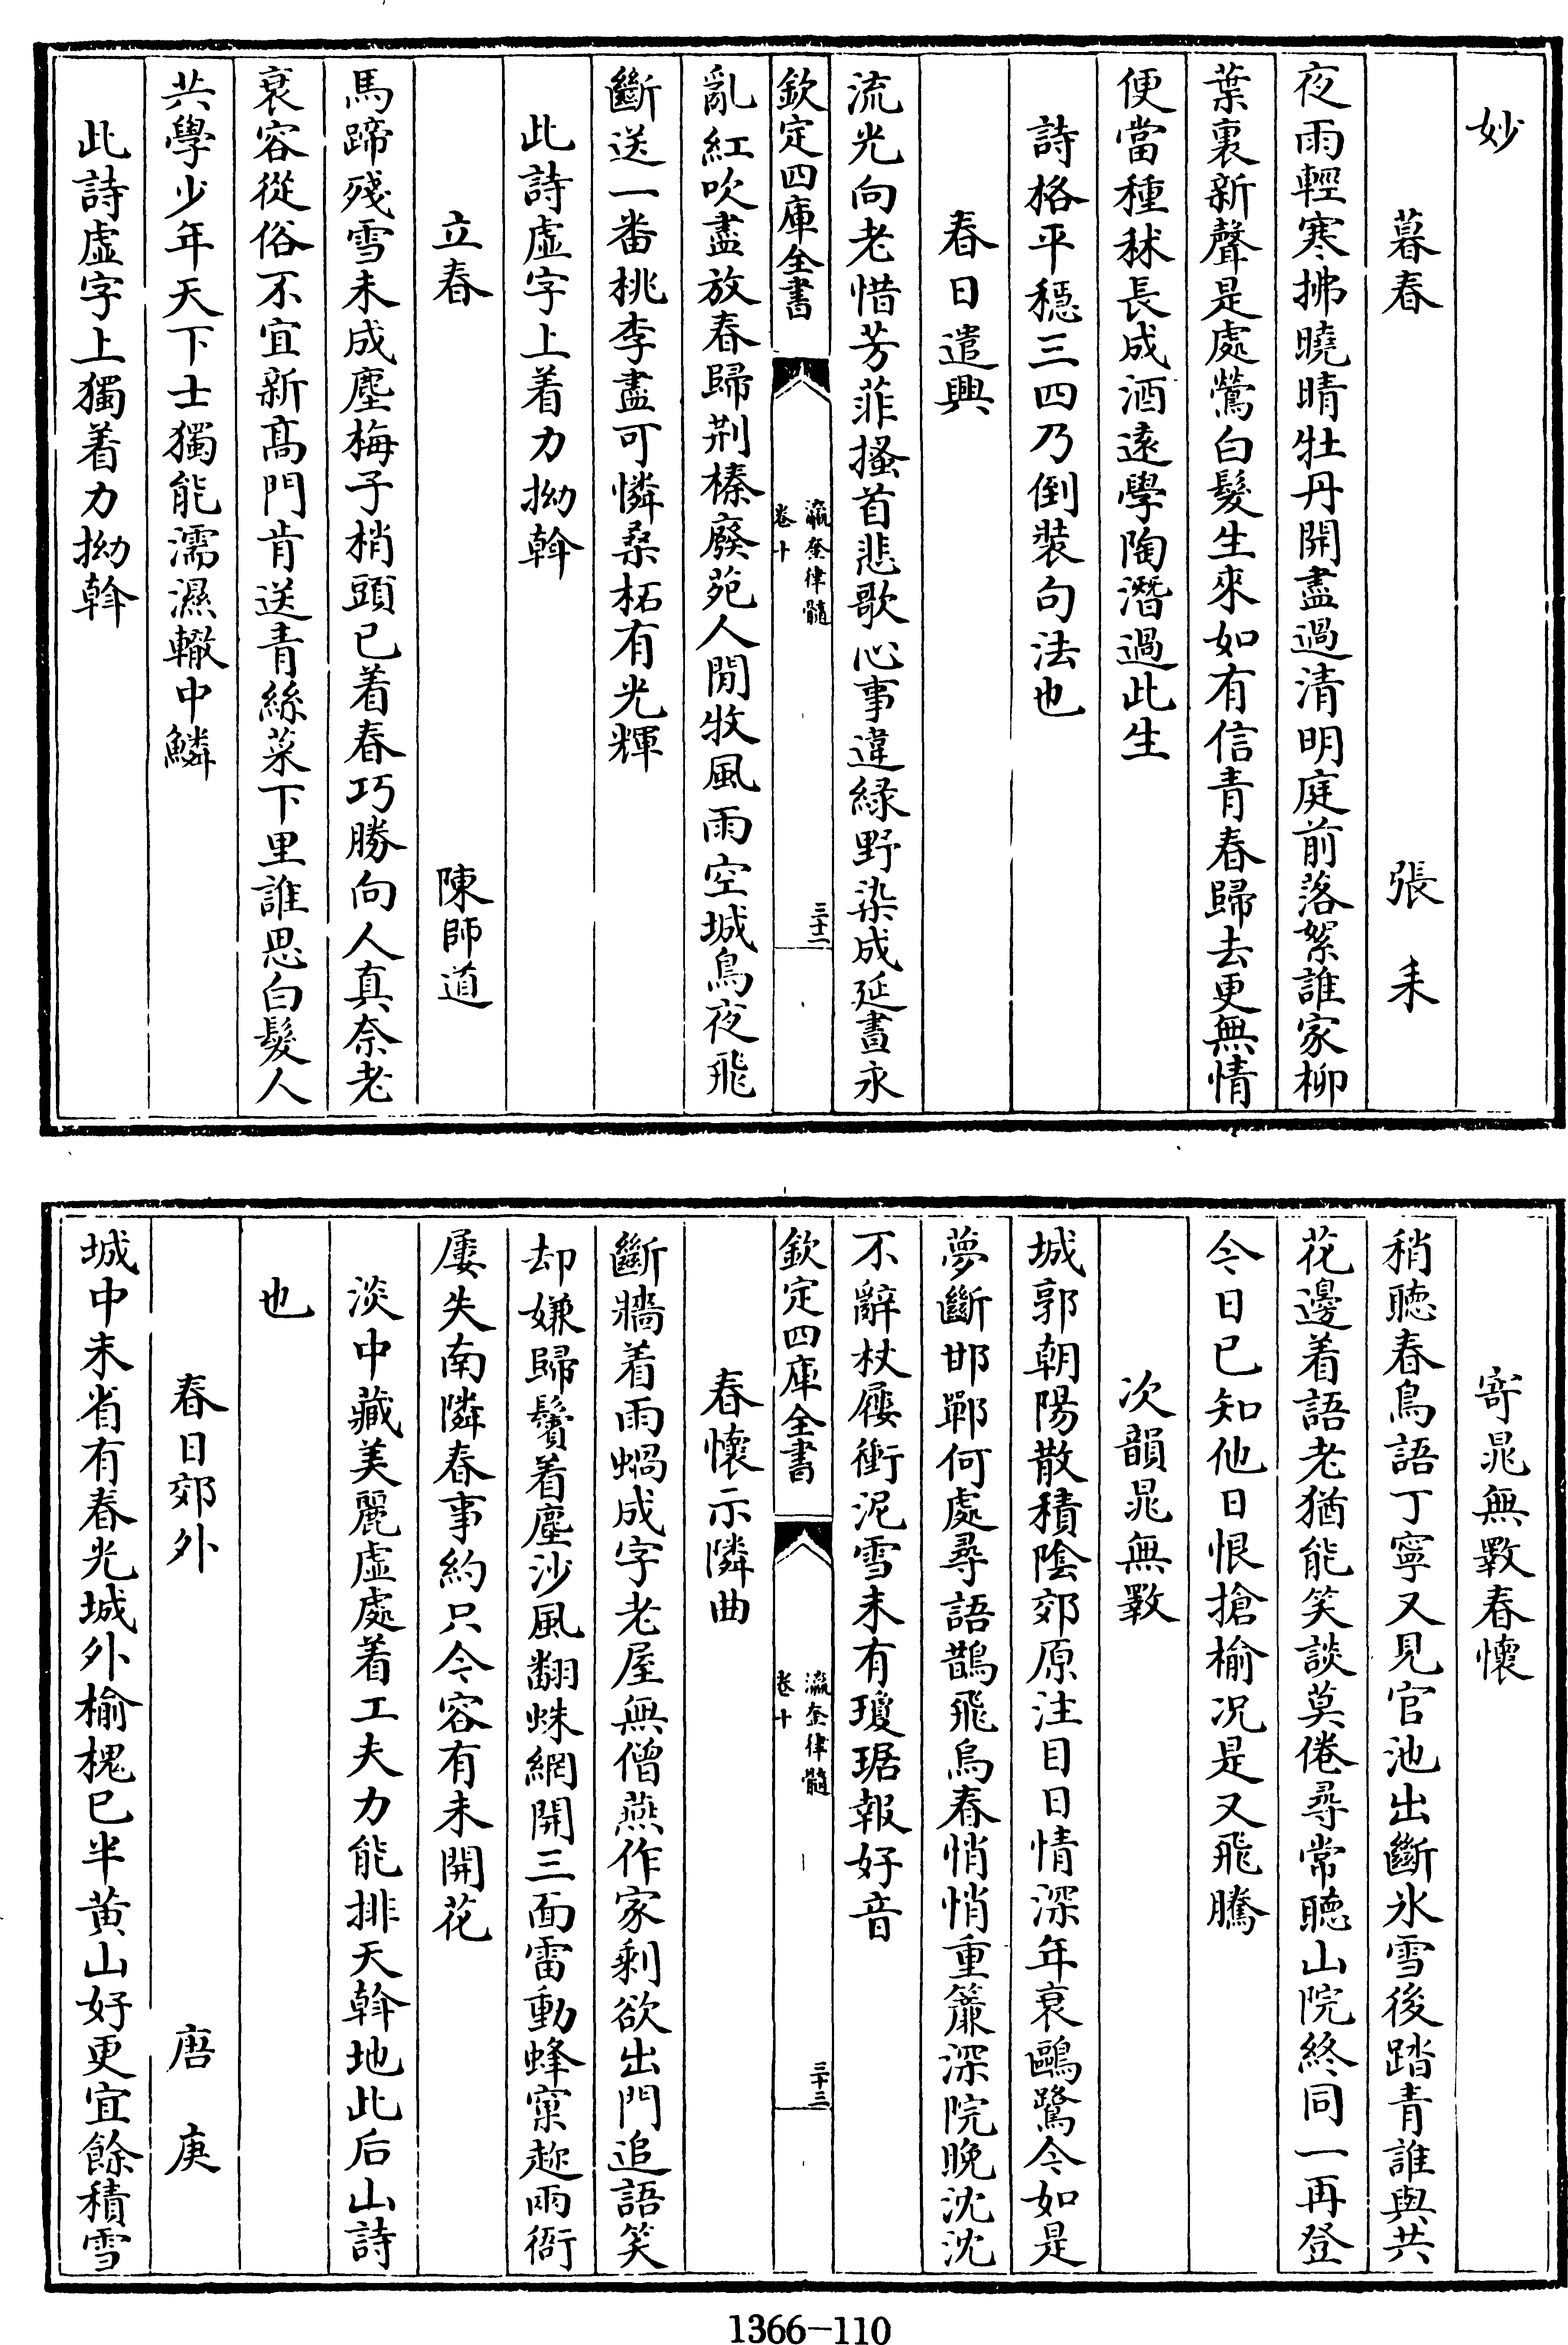 妙
暮春　張耒
夜雨輕寒拂曉晴牡丹開盡過清明庭前落絮誰家柳
葉裏新聲是處鶯白髮生來如有信青春歸去更無情
便當種秫長成酒遠學陶潛過此生
詩格平穩三四乃倒裝句法也
春日遣興
流光向老惜芳菲搔首悲歌心事違綠野染成延晝永
欽定四庫全書
瀛奎律髓
卷十
三十二
亂紅吹盡放春歸荆榛廢苑人閒牧風雨空城鳥夜飛
斷送一番桃李盡可憐桑柘有光輝
此詩虛字上着力拗斡
立春　陳師道
馬蹄殘雪未成塵梅子梢頭已着春巧勝向人真奈老
衰容從俗不宜新髙門肯送青絲菜下里誰思白髮人
共學少年天下士獨能濡濕轍中鱗
此詩虛字上獨着力拗斡
寄晁無斁春懷
稍聽春鳥語丁寧又見官池出斷氷雪後踏青誰與共
花邊着語老猶能笑談莫倦尋常聽山院終同一再登
今日已知他日恨搶榆况是又飛騰
次韻晁無斁
城郭朝陽散積陰郊原注目日情深年衰鷗鷺今如是
夢斷邯鄲何處尋語鵲飛烏春悄悄重簾深院晚沈沈
不辭杖屨衝泥雪未有瓊琚報好音
欽定四庫全書
瀛奎律髓
卷十
三十三
春懷示隣曲
斷牆着雨蝸成字老屋無僧燕作家剩欲出門追語笑
却嫌歸鬢着塵沙風翻蛛網開三面雷動蜂窠趂兩衙
屢失南隣春事約只今容有未開花
淡中藏美麗虛處着工夫力能排天斡地此后山詩
也
春日郊外　唐庚
城中未省有春光城外榆槐已半黄山好更宜餘積雪
1366-110